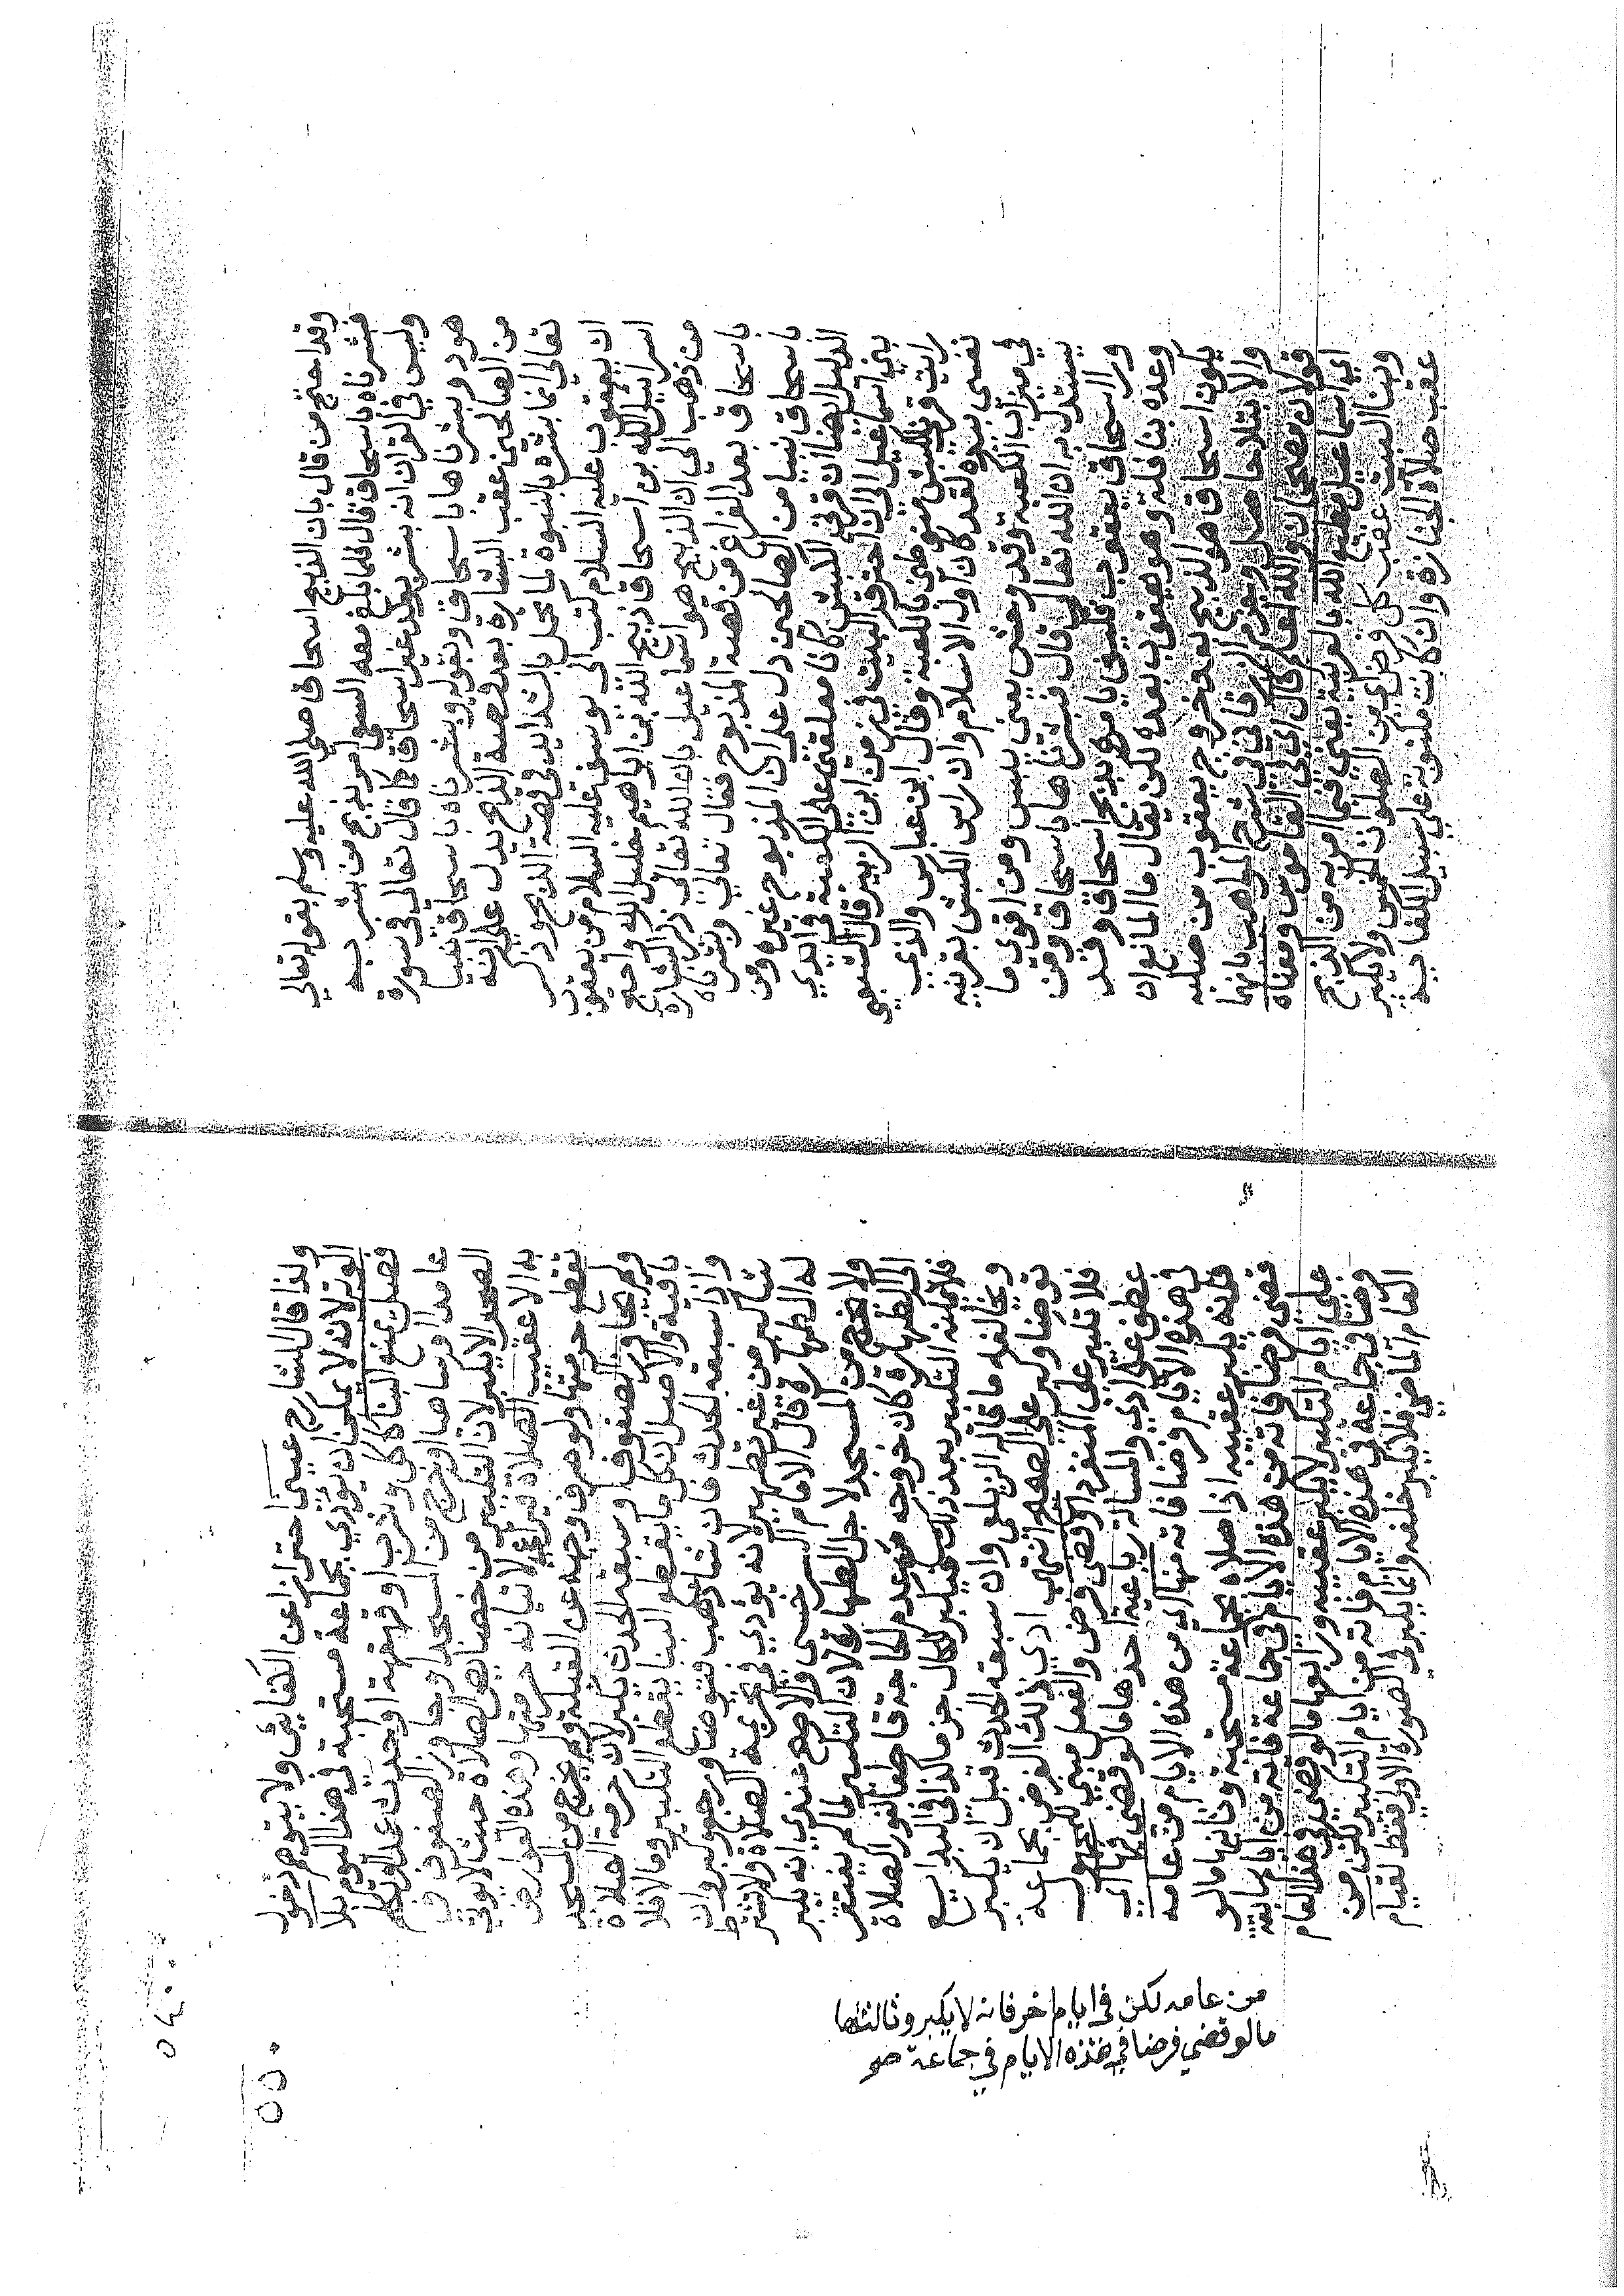 وقد احتج من قال بان الذبيح اسحاق صلى الله عليه وسلم بقوله تعالى
فبشرناه باسحاق قال فلما بلغ معه السعي امر بذبح من بشر به
وليس في القران انه بشر بولد غير اسحاق كما قال تعالى في سورة
هود وبشرناها باسحاق وبقوله وبشرناه باسحاق نبيا
من الصالحين عقب البشارة بعد قصة الذبح يدل على انه
تعالى انما بشره بالنبوة لما تحمل بالشدايد في قصة الذبح وذكر
ان يعقوب عليه السلام كتب الى يوسف عليه السلام من يعقوب
اسرائيل الله بن اسحاق ذبيح الله بن ابراهيم خليل الله واحتج
من ذهب الى ان الذبيح هو اسماعيل بان الله تعالى ذكر البشارة
باسحاق بعد الفراغ من قصة المذبوح فقال تعالى وبشرناه
باسحاق نبيا من الصالحين دل على ان المذبوح غيره ومن
الدليل ايضا ان قرني الكبش كانا معلقتين على الكعبة في ايدي
بني اسماعيل الى ان احترق البيت في زمن ابن الزبير قال الشعبي
رايت قرني الكبش منوطين بالكعبة وقال ابن عباس والذي
نفسي بيده لقد كان اول الاسلام وان راس الكبش بقرنيه
في ميزاب الكعبة وقد وحش يعني يبس ومن اقوى ما
يستدل به ان الله تعالى قال فبشرناها باسحاق ومن
ورا اسحاق يعقوب فكيف يامره بذبح اسحاق وقد
وعده بنافلة وهو يعقوب بعده لكن يقال ما المانع ان
يكون اسحاق هو الذبيح بعد خروج يعقوب من صلبه
والابتلا حاصل وجزم الزرقاني في شرح المواهب بانهما
قولان مصححان والله اعلم قال في القاموس ومعناه
اي اسماعيل مطيع الله بالعربية يعني فيما امر به من الذبح
وبينا البيت عقب كل فرض اي من الصلوات الخمس ولا يكبر
عقب صلاة الجنازة وان كانت مكتوبة على سبيل الكفاية
ولذا قال الشارح عيني احترازا عن الكفائي ولا يتوهم دخول
الوتر لانه لا يمكن ان يؤدي بجماعة مستحبة في هذا اليوم بلا
فصل يمنع البنا كاكل وشرب او قهقهة او حدث عمد او تكلم
عامدا او ساهيا او خرج من المسجد او جاوز الصفوف في
الصحرا لا يكبر لان التكبير من خصايص الصلاة حيث لا يؤتى
به الا عقيب الصلاة فيراعى لاتيانه حرمتها وهذه العوارض
تقطع حرمتها ولو صرف وجهه عن القبلة ولم يخرج من المسجد
ولم يجاوز الصفوف او سبقه الحدث يكبر لان حرمة الصلاة
باقية والاصل ان كل ما يقطع البنا يقطع التكبير وما لا فلا
واذا سبقه الحدث فان شا ذهب فتوضا ورجع وكبر وان
شا كبر من غير تطهير لانه يؤدي في تحريمة الصلاة ولا تشترط
له الطهارة قال الامام السرخسي والاصح عندي انه يكبر
ولا يخرج من المسجد لاجل الطهارة لان التكبير لما لم يفتقر
الى الطهارة كان خروجه مع عدم الحاجة قاطعا لفور الصلاة
فلا يمكنه التكبير بعد ذلك فيكبر للحال جزما كذا في البدايع
ويخالفه ما قاله الزيلعي وان سبقه الحدث قبل ان يكبر
توضا وكبر على الصحيح انتهى ادي ذلك الفرض بجماعة
فلا تكبير على المنفرد او قضي فرض والفعل مبني للمجهول
عطف على ادي والمسالة رباعية احدها ما لو قضي فيها اي
في هذه الايام فرضا فاته منها اي من هذه الايام من عامه
فانه يكبر عقبه اذا صلاه بجماعة مستحبة وثانيها ما لو
قضي فرضا فاته من هذه الايام في جماعة فاته من ايام سابقة
على ايام التكبير لا يكبر عقيبه ورابعها ما لو قضي في هذا العام
فرضا في جماعة في هذه الايام فاته من ايام التكبير لكن من
العام الماضي فلا يكبر خلفه وانما يكبر في الصورة الاولى فقط لقيام
من عامه لكن في ايام اخر فانه لا يكبر وثالثها
ما لو قضي فرضا في هذه الايام في جماعة صح
٥٥٠